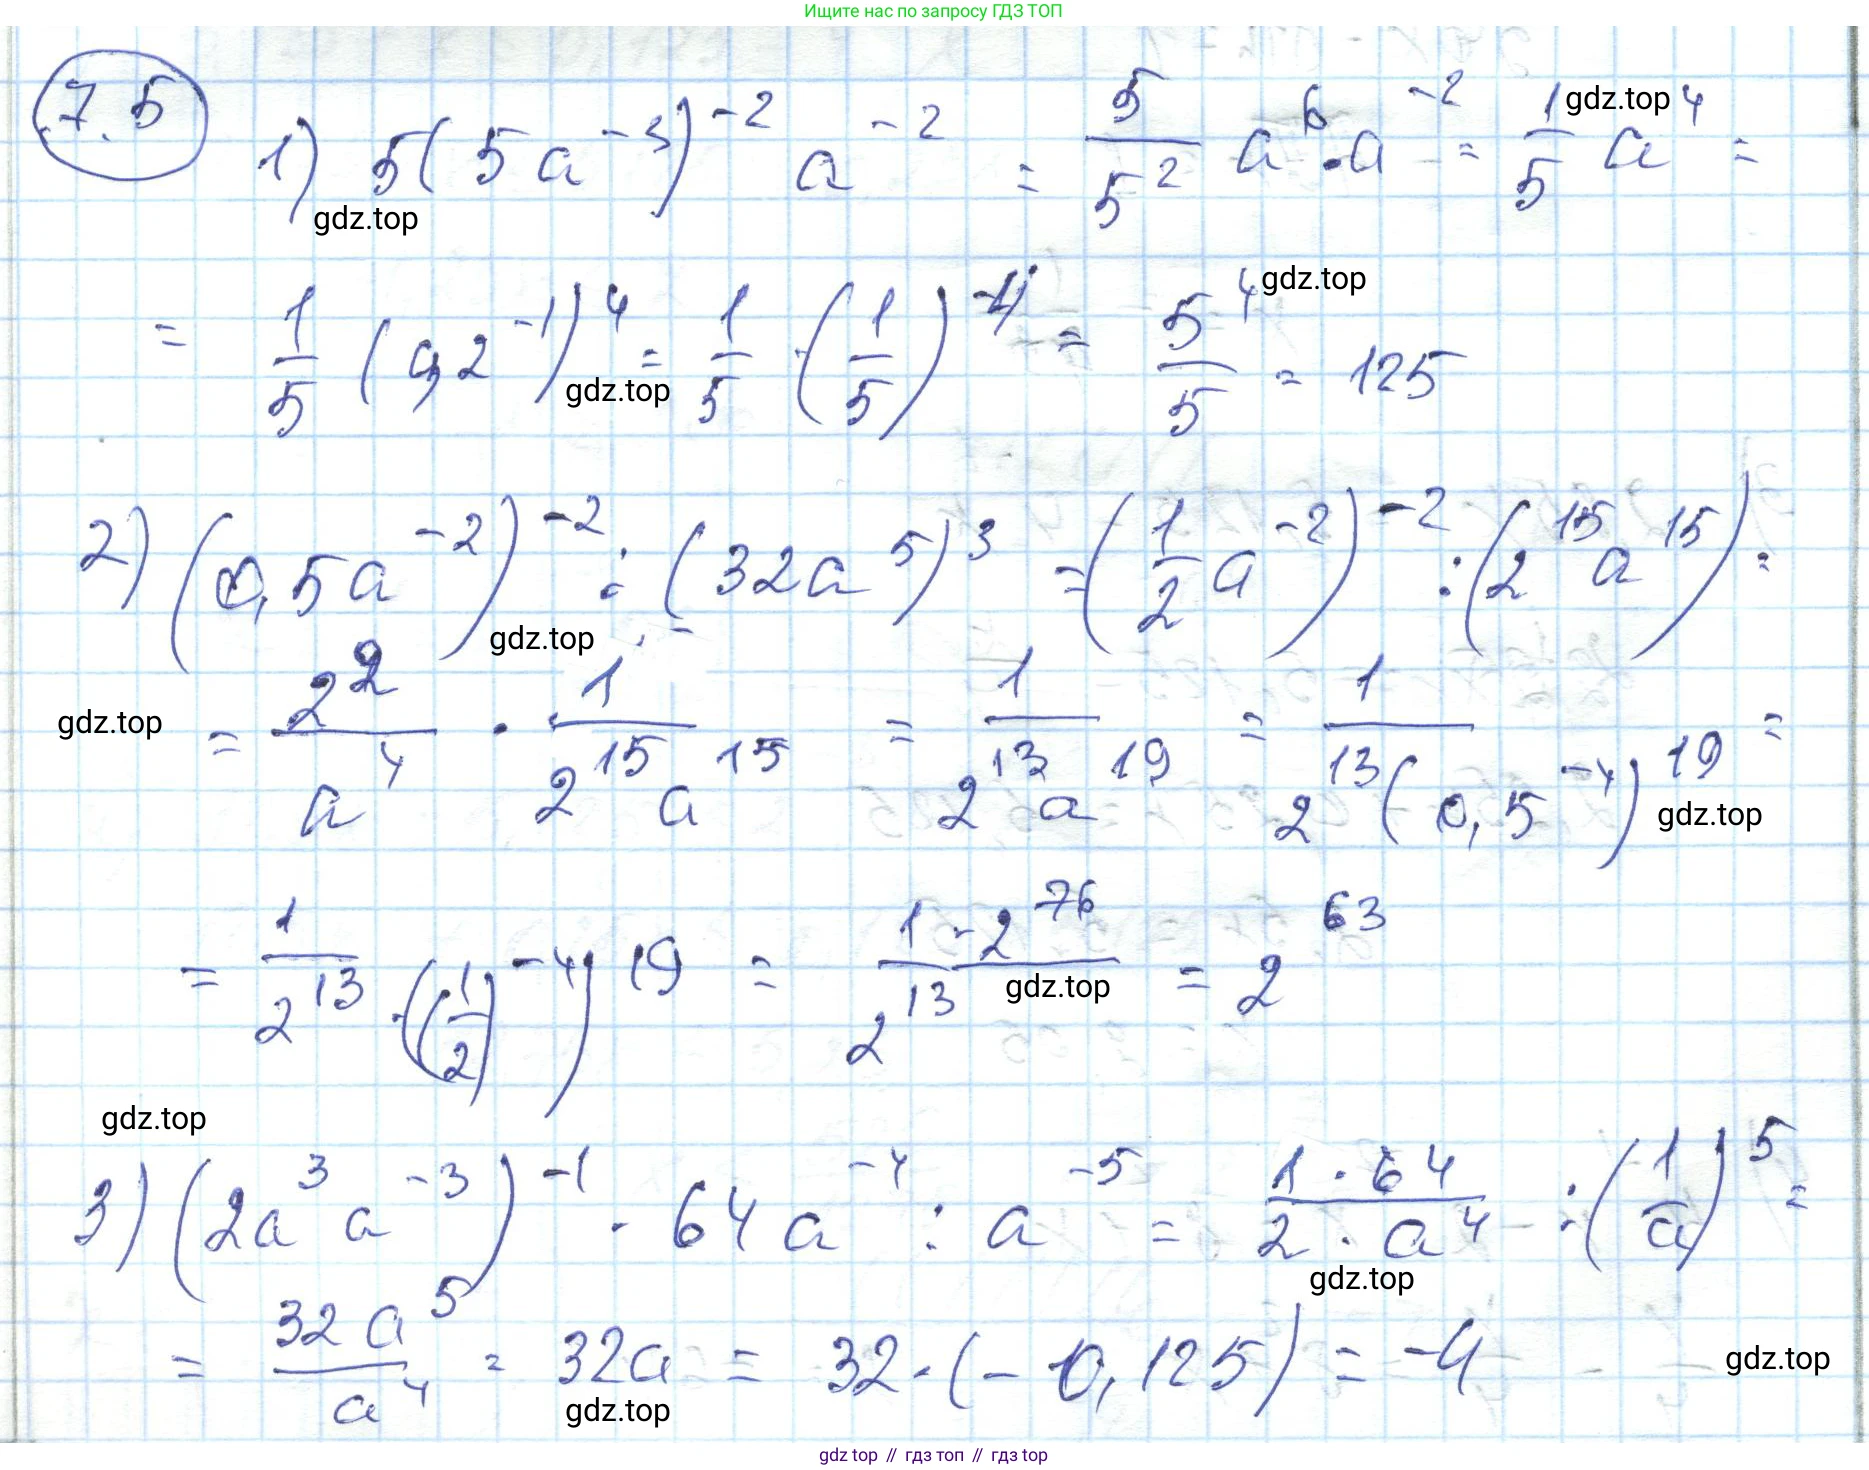 Ищите нас по запросу ГДЗ ТОП
7.5
1) 5(5a⁻³)⁻² a⁻² = 5/5² a⁶·a⁻² = 1/5 a⁴ =
gdz.top
gdz.top
= 1/5 (0,2⁻¹)⁴ = 1/5 · (1/5)⁻⁴ = 5⁴/5 = 125
gdz.top
gdz.top
2) (0,5a⁻²)⁻² : (32a⁵)³ = (1/2 a⁻²)⁻² : (2¹⁵a¹⁵) =
gdz.top
= 2²/a⁴ · 1/(2¹⁵a¹⁵) = 1/(2¹³a¹⁹) = 1/(2¹³(0,5⁻⁴)¹⁹) =
gdz.top
gdz.top
= 1/2¹³ · ((1/2)⁻⁴)¹⁹ = (1·2⁷⁶)/2¹³ = 2⁶³
gdz.top
gdz.top
3) (2a³a⁻³)⁻¹ · 64a⁻⁴ : a⁻⁵ = (1·64)/(2·a⁴) : (1/a)⁵ =
gdz.top
= 32a⁵/a⁴ = 32a = 32·(-0,125) = -4
gdz.top
gdz.top
gdz top // гдз топ // гдз top